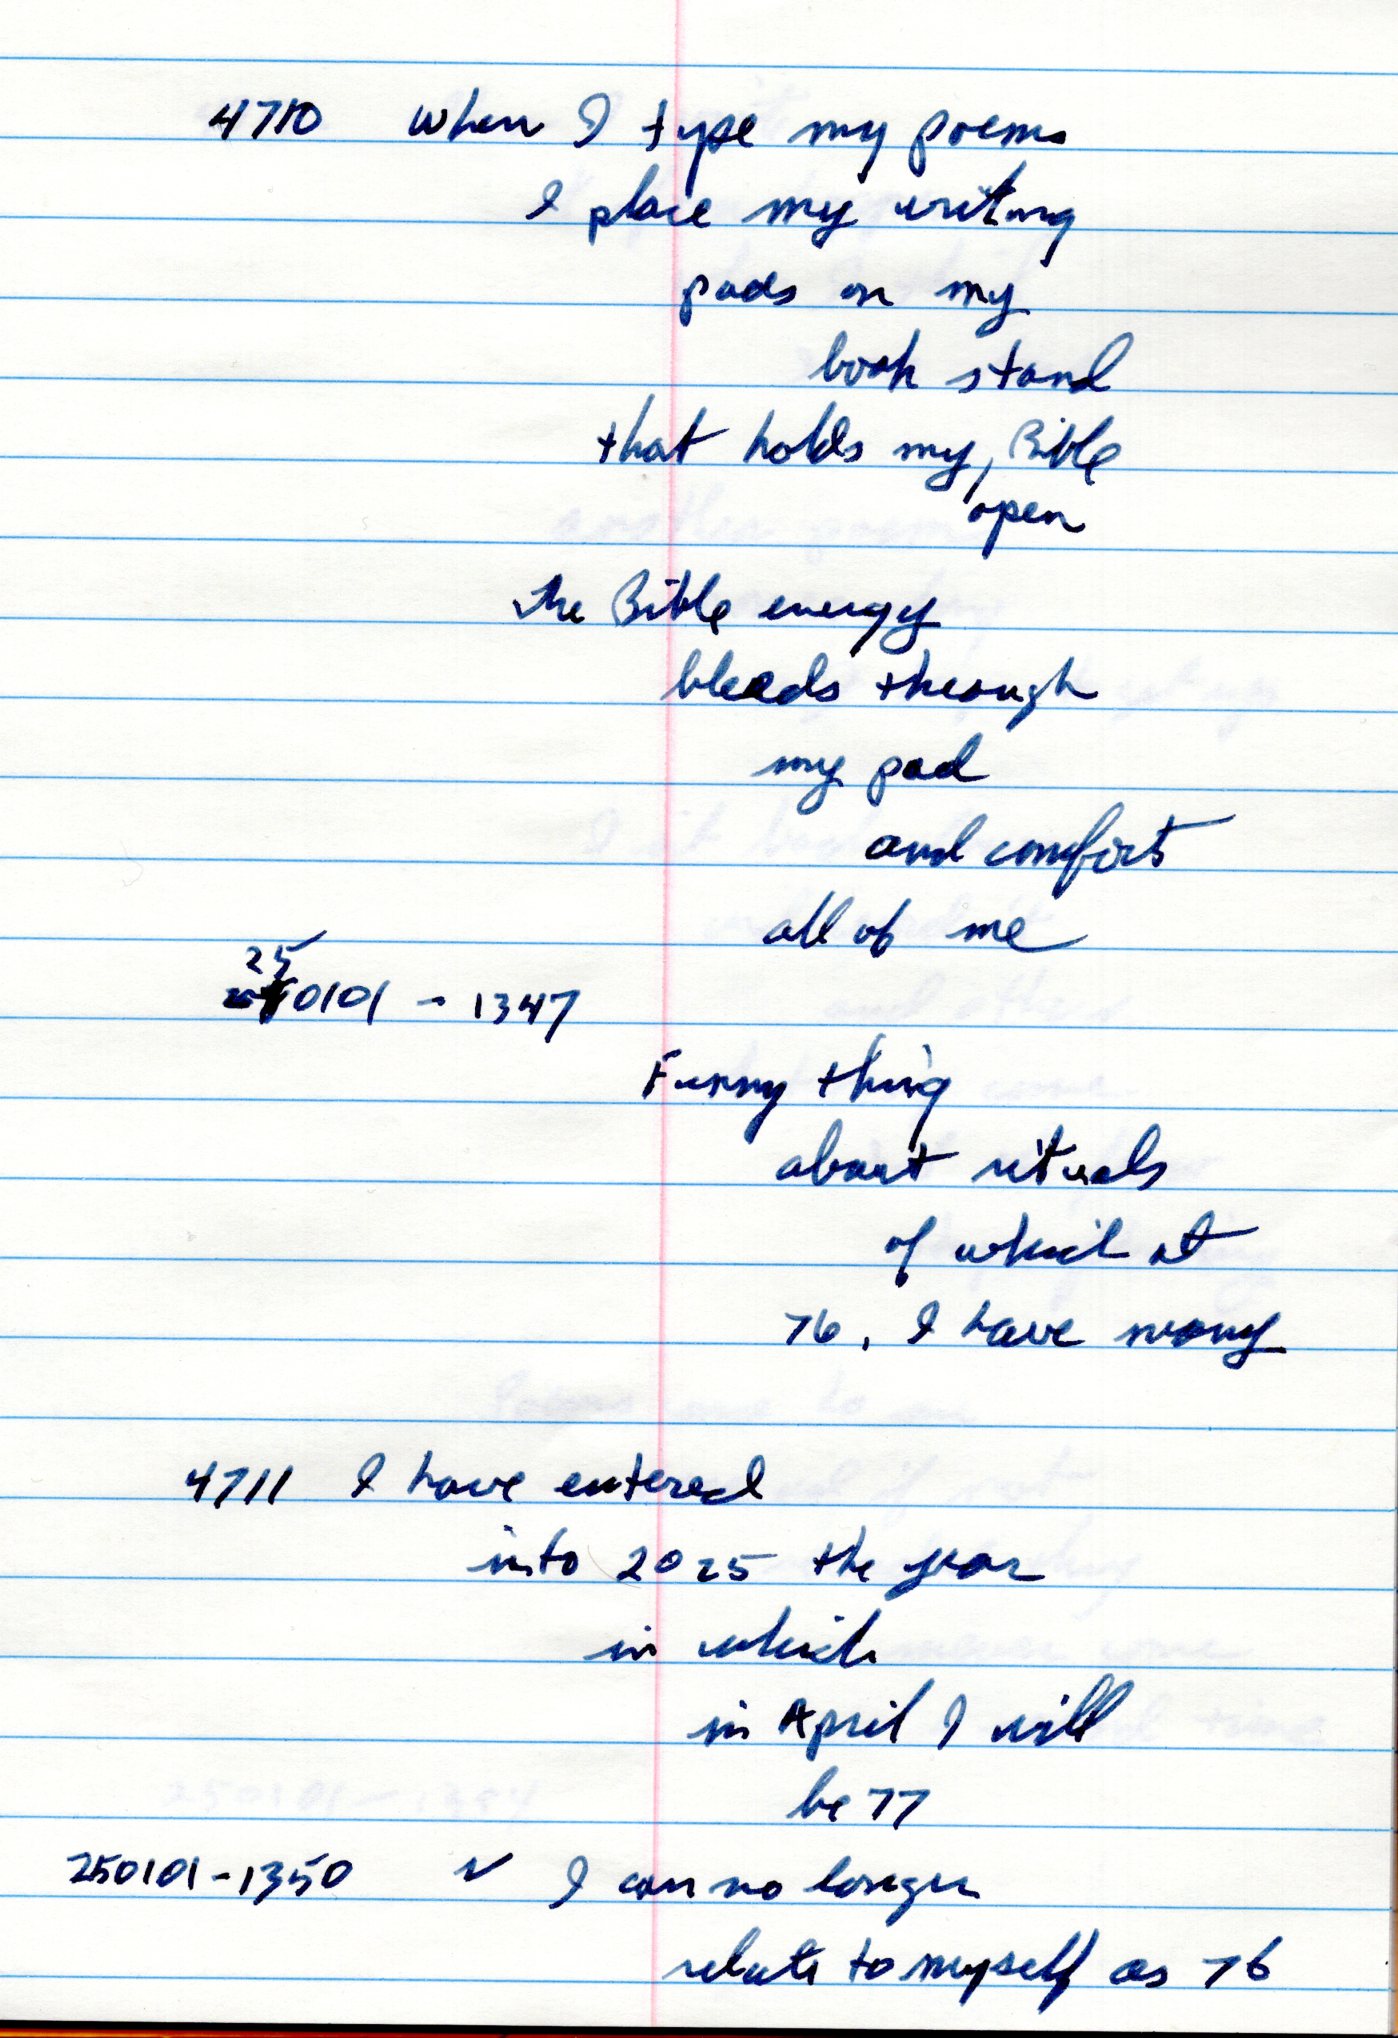 4710 When I type my poems
I place my writing
pads on my
book stand
that holds my, Bible
open
the Bible energy
bleeds through
my pad
and comforts
all of me
25
0101 - 1347
Funny thing
about rituals
of which at
76, I have many
4711 I have entered
into 2025 the year
in which
in April I will
be 77
250101-1350 ✓ I can no longer
relate to myself as 76